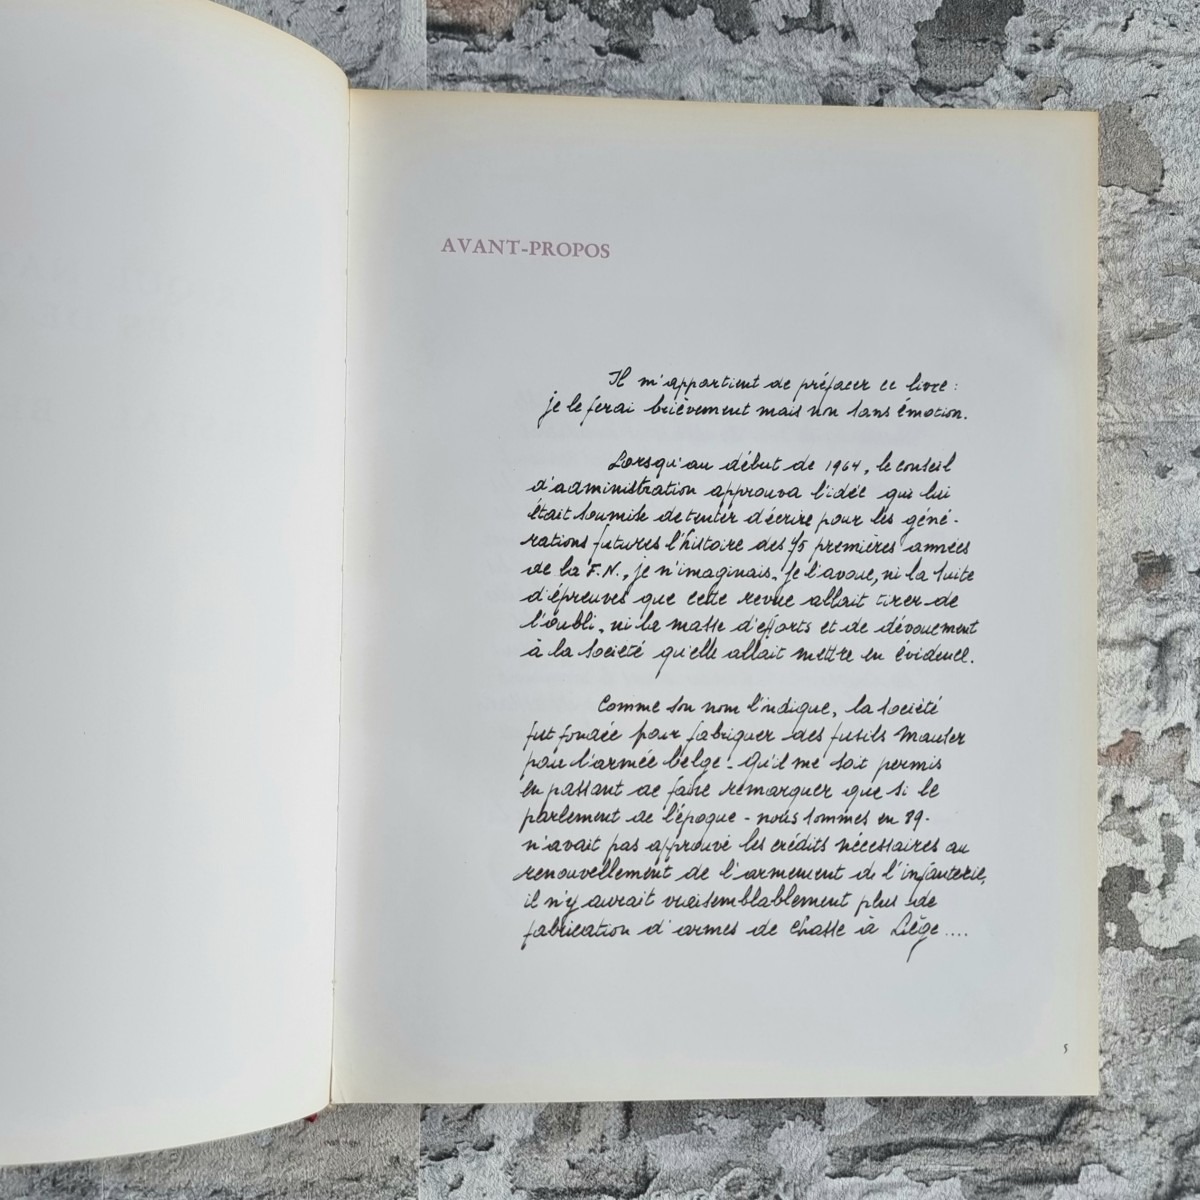 AVANT-PROPOS
Il m'appartient de préfacer ce livre :
je le ferai brièvement mais non sans émotion.
Lorsqu'au début de 1964, le conseil
d'administration approuva l'idée qui lui
était soumise de tenter d'écrire pour les géné-
rations futures l'histoire des 75 premières années
de la F.N., je n'imaginais, je l'avoue, ni la suite
d'épreuves que cette revue allait tirer de
l'oubli, ni la masse d'efforts et de dévouement
à la société qu'elle allait mettre en évidence.
Comme son nom l'indique, la société
fut fondée pour fabriquer des fusils Mauser
pour l'armée belge. Qu'il me soit permis
en passant de faire remarquer que si le
parlement de l'époque - nous sommes en 89 -
n'avait pas approuvé les crédits nécessaires au
renouvellement de l'armement de l'infanterie,
il n'y aurait vraisemblablement plus de
fabrication d'armes de chasse à Liège ....
5